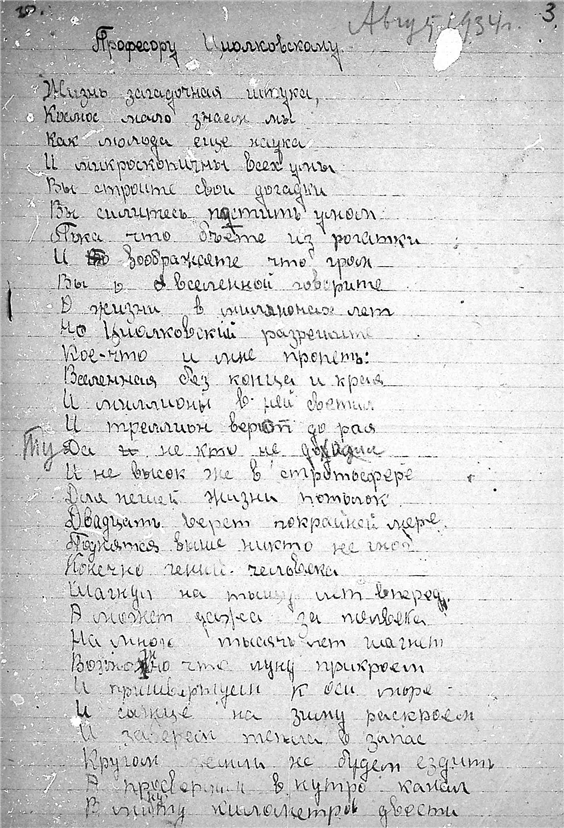 Авгус 1934г. 3
Професору Циолковскому.
Жизнь загадочная штука,
Космос мало знаем мы
Как молода еще наука
И микроскопичны всех умы
Вы строите свои догадки
Вы силитесь постить умом
Пока что бъёте из рогатки
И воображаете что гром
Вы о вселенной говорите
О жизни в миллионах лет
Но Циолковский разрешите
Кое-что и мне пропеть:
Вселенная без конца и края
И миллионы в ней светил
И треллион верст до рая
Ту да не кто не
И не высок же в стротосфере
Для нешей жизни потолок
Двадцать верст покрайней мере
Поднятся выше никто не мог
Конечно гений человека
Шагнул на тыщу лет вперед,
А может даже за полвека
На много тысячь лет шагнет
Возможно что луну прикроем
И к оси море
И сонце на зиму раскроем
И заберем тепла в запас
Кругом земли не будем ездить
А просверлим в нутро канал
В минуту километров двести